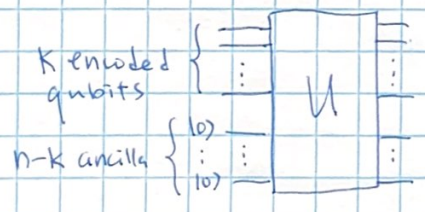 K encoded
qubits
U
|0⟩
n-k ancilla
|0⟩